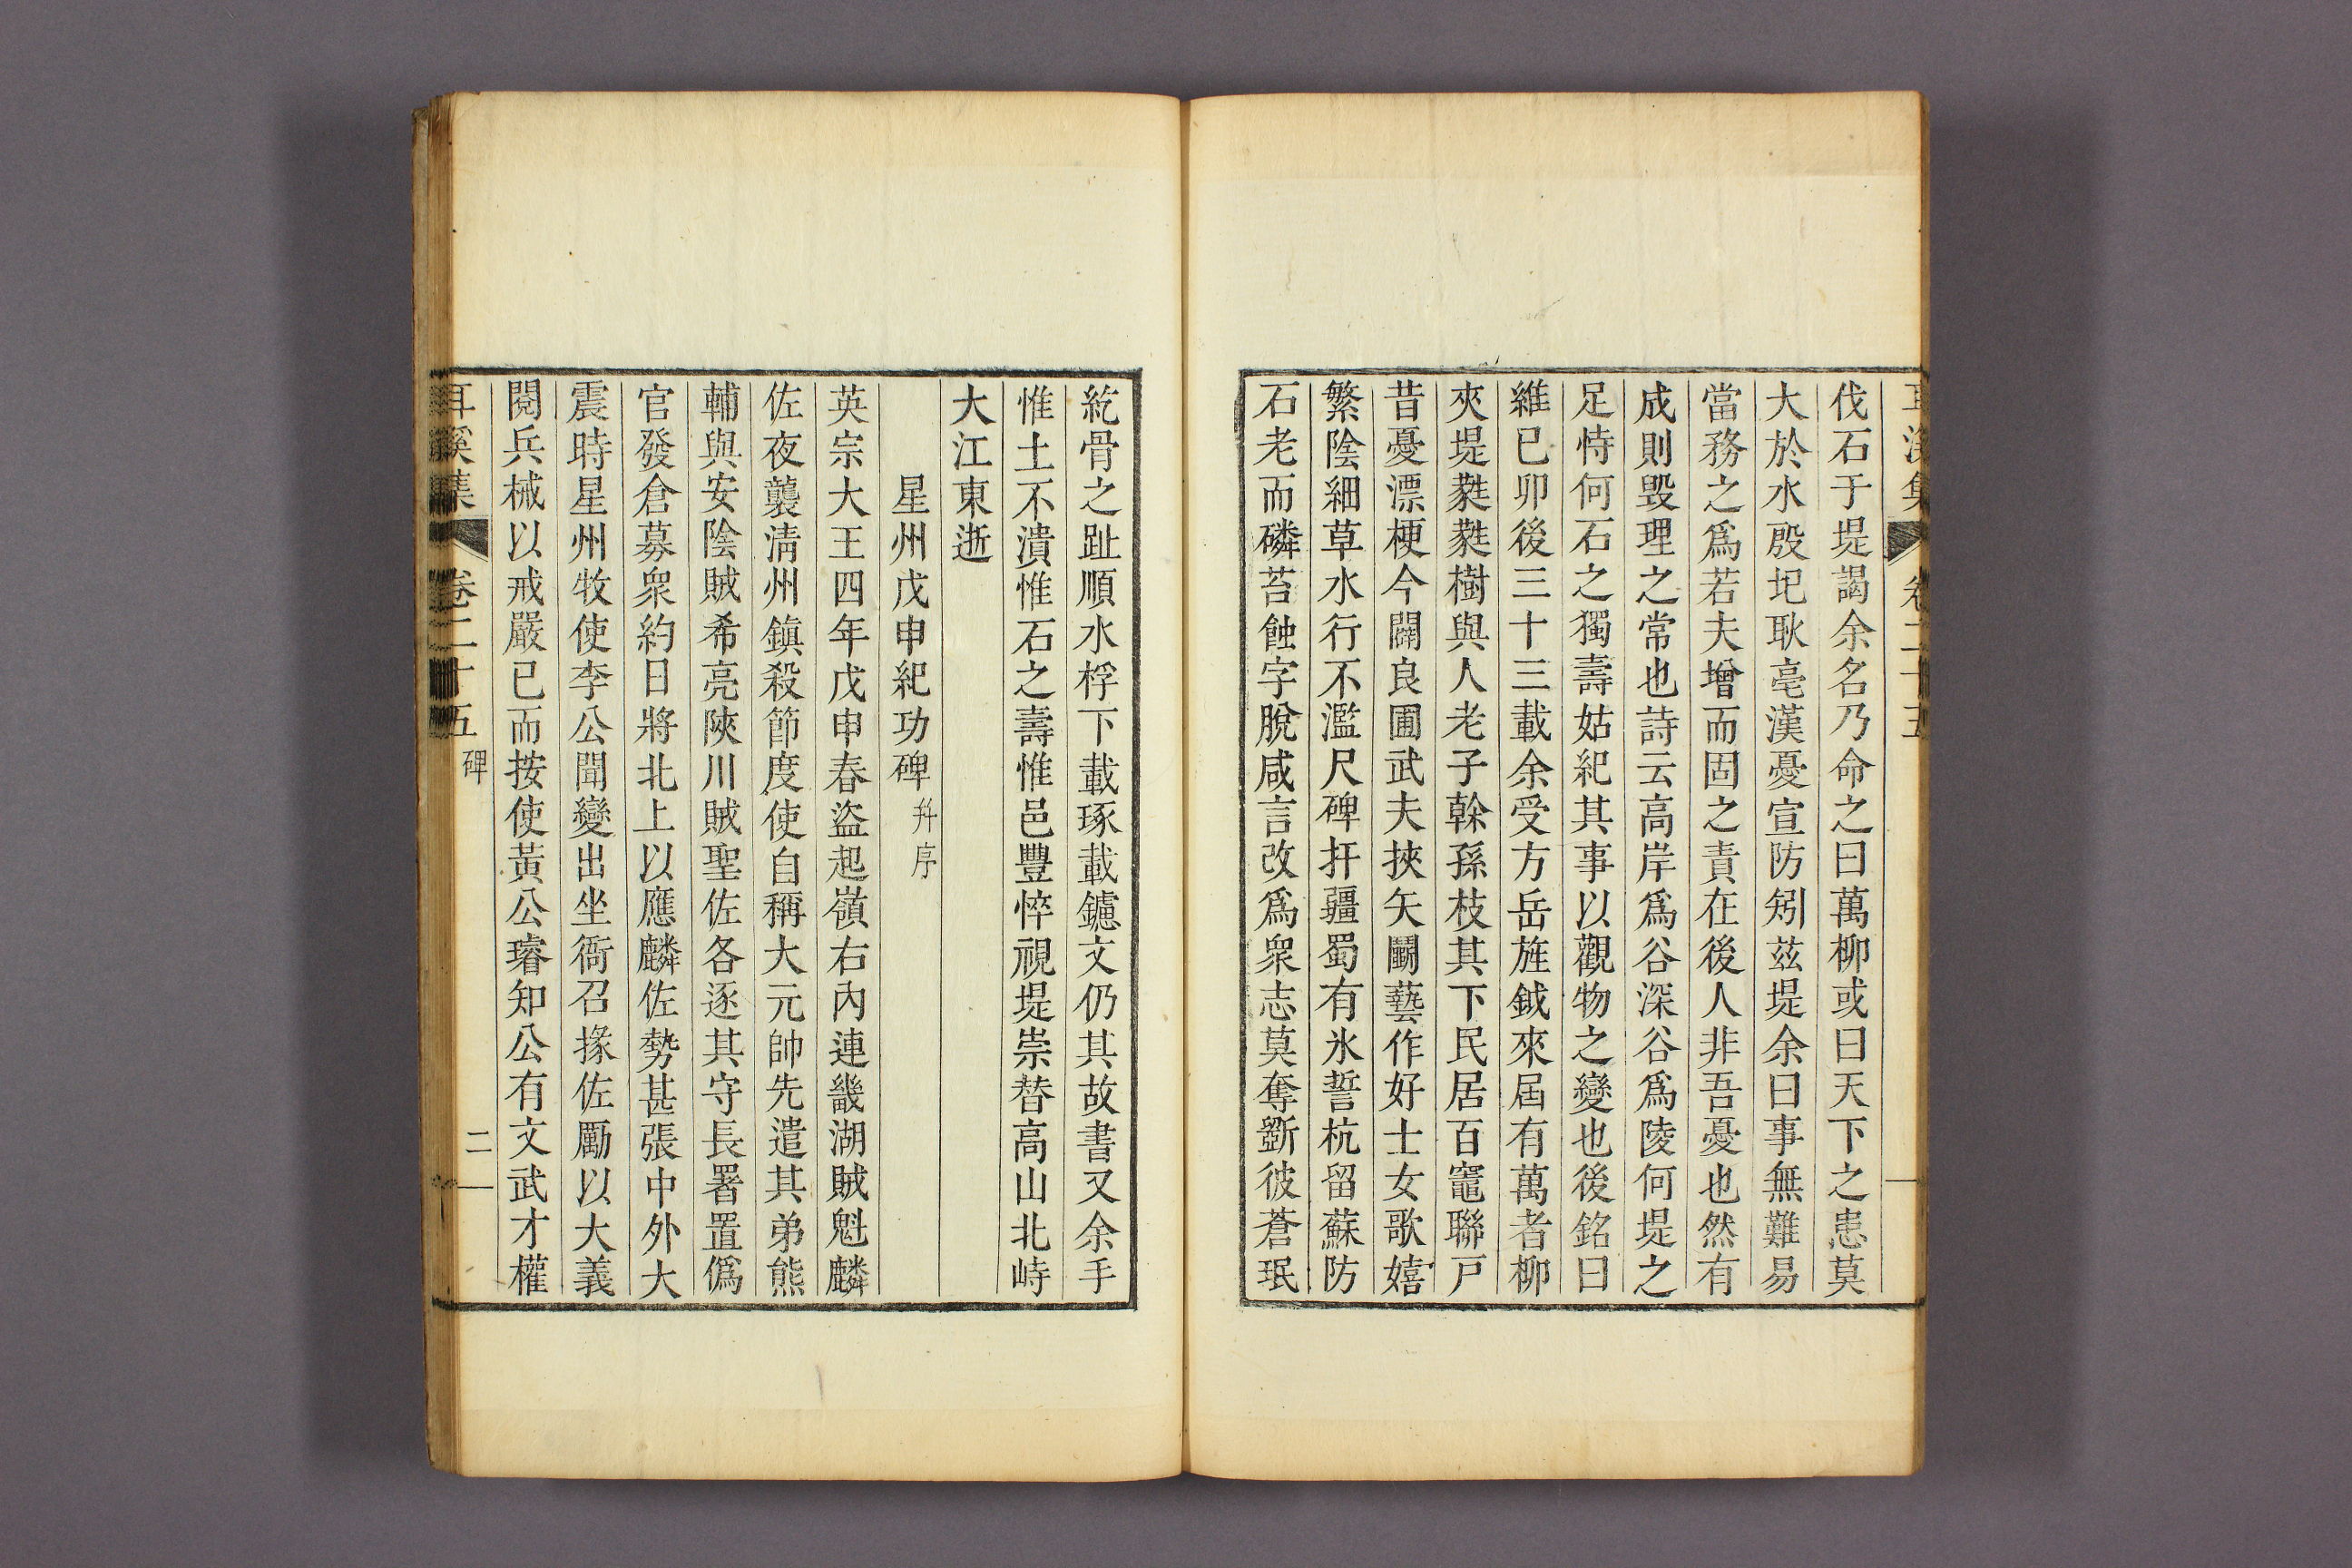 耳溪集 卷二十五 一
伐石于堤謁余名乃命之曰萬柳或曰天下之患莫
大於水殷圯耿亳漢憂宣防矧玆堤余曰事無難易
當務之爲若夫增而固之責在後人非吾憂也然有
成則毁理之常也詩云高岸爲谷深谷爲陵何堤之
足恃何石之獨壽姑紀其事以觀物之變也後銘曰
維已卯後三十三載余受方岳旌鉞來屆有萬者柳
夾堤蕤蕤樹與人老子榦孫枝其下民居百竈聯戸
昔憂漂梗今闢良圃武夫挾矢鬭藝作好士女歌嬉
繁陰細草水行不濫尺碑扞疆蜀有氷誓杭留蘇防
石老而磷苔蝕字脫咸言改爲衆志莫奪斲彼蒼珉
紇骨之趾順水桴下載琢載鑢文仍其故書又余手
惟土不潰惟石之壽惟邑豐悴視堤崇替高山北峙
大江東逝
星州戊申紀功碑 幷序
英宗大王四年戊申春盜起嶺右內連畿湖賊魁麟
佐夜襲淸州鎭殺節度使自稱大元帥先遣其弟熊
輔與安陰賊希亮陜川賊聖佐各逐其守長署置僞
官發倉募衆約日將北上以應麟佐勢甚張中外大
震時星州牧使李公聞變出坐衙召掾佐勵以大義
閱兵械以戒嚴已而按使黃公璿知公有文武才權
耳溪集 卷二十五 碑 二